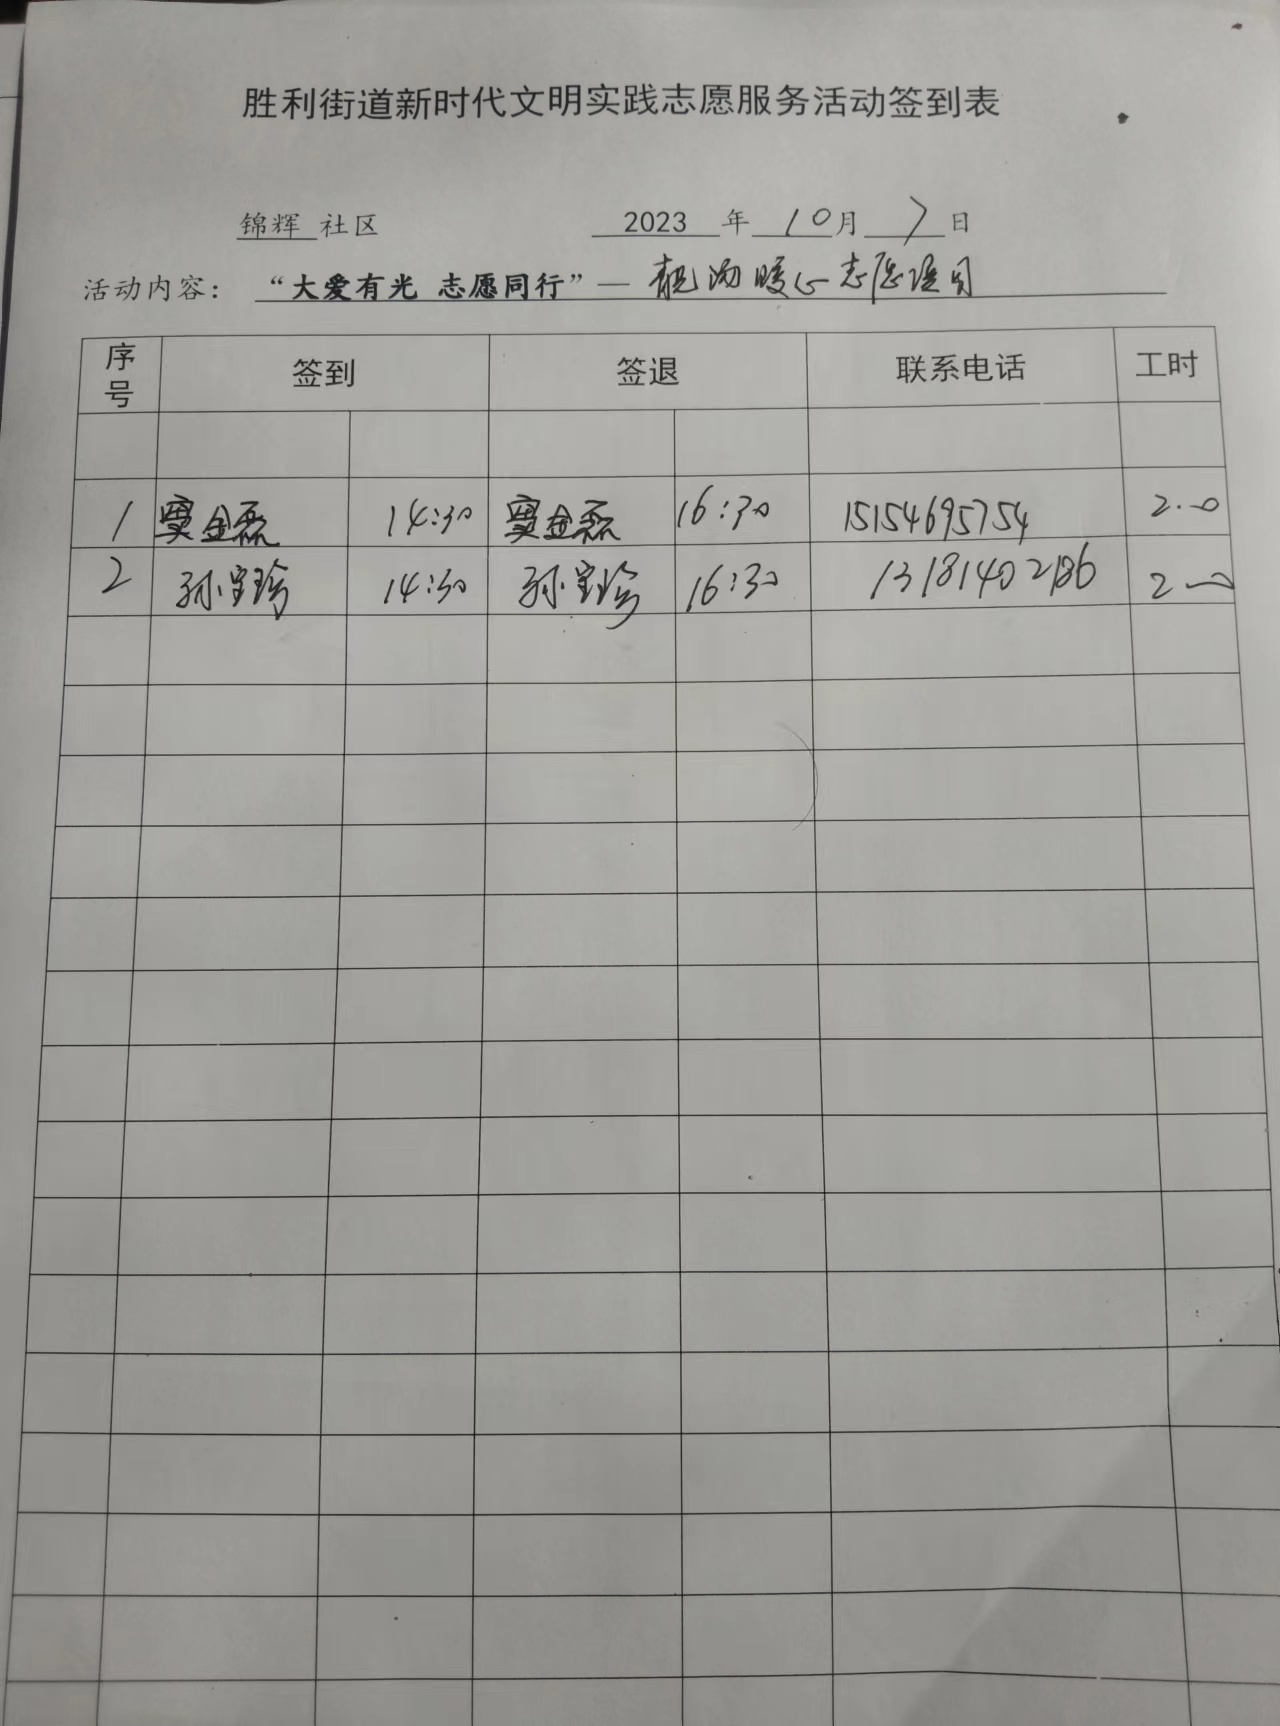 胜利街道新时代文明实践志愿服务活动签到表
锦辉 社区 2023 年 10 月 7 日
活动内容：“大爱有光 志愿同行”— 暖心志愿
序号 签到 签退 联系电话 工时
1 窦金磊 14:30 窦金磊 16:30 15154695754 2.0
2 孙宝珍 14:30 孙宝珍 16:30 13181402186 2.0